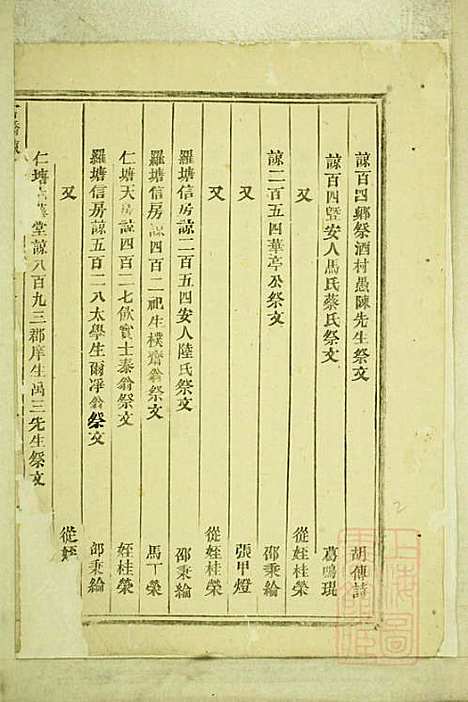 諒百四鄉祭酒村愚陳先生祭文 胡傳詩
諒百四暨安人馬氏蔡氏祭文 葛鳴琨
又 從姪桂榮
諒二百五四華亭公祭文 邵秉綸
又 張甲燈
又 從姪桂榮
羅塘信房諒二百五四安人陸氏祭文 邵秉綸
羅塘信房諒四百二祀生樸齋翁祭文 馬丁榮
仁塘天房諒四百二七飲賓士泰翁祭文 姪桂榮
羅塘信房諒五百二八太學生爾淨翁祭文 邵秉綸
又 從姪
仁塘 堂諒八百九三郡庠生禹三先生祭文